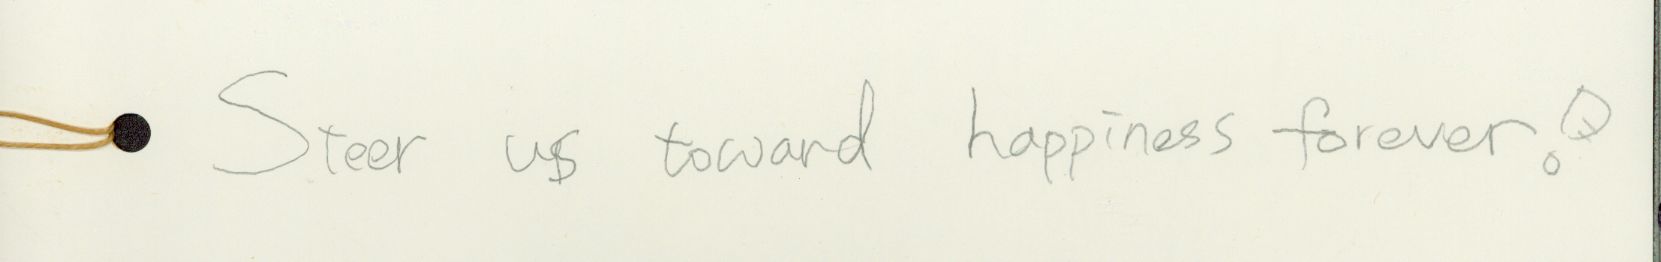 Steer us toward happiness forever!